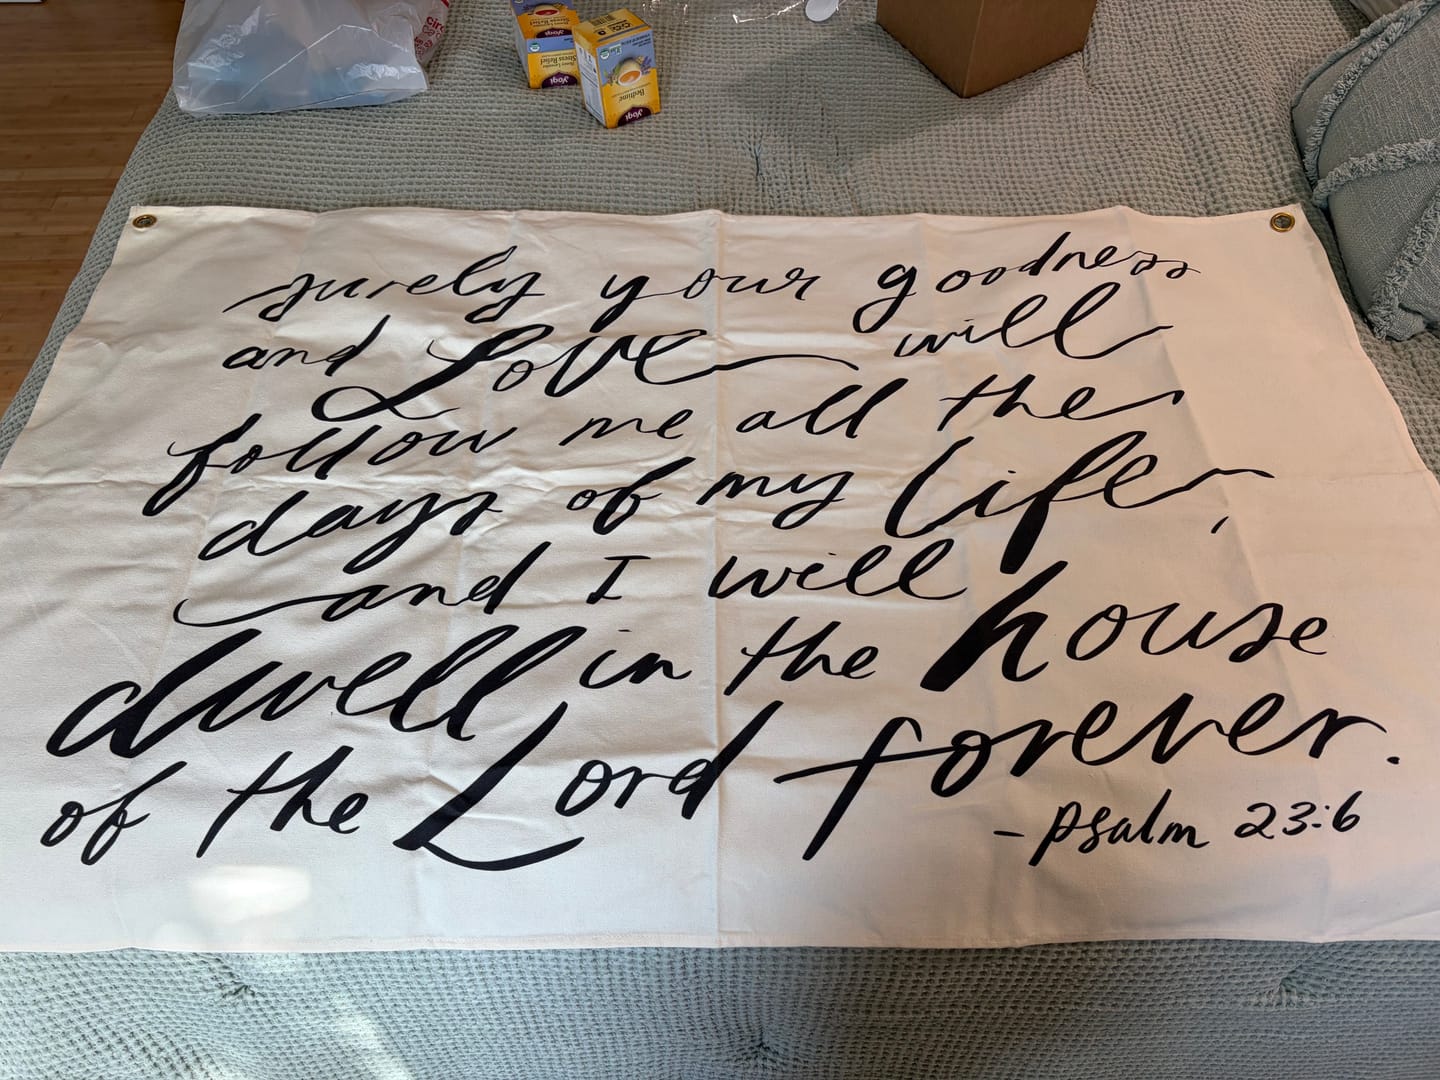 circ
Honey Lavender
Stress Relief
yogi
Bedtime
yogi
surely your goodness
and Love will
follow me all the
days of my life,
and I will
dwell in the house
of the Lord forever.
-psalm 23:6